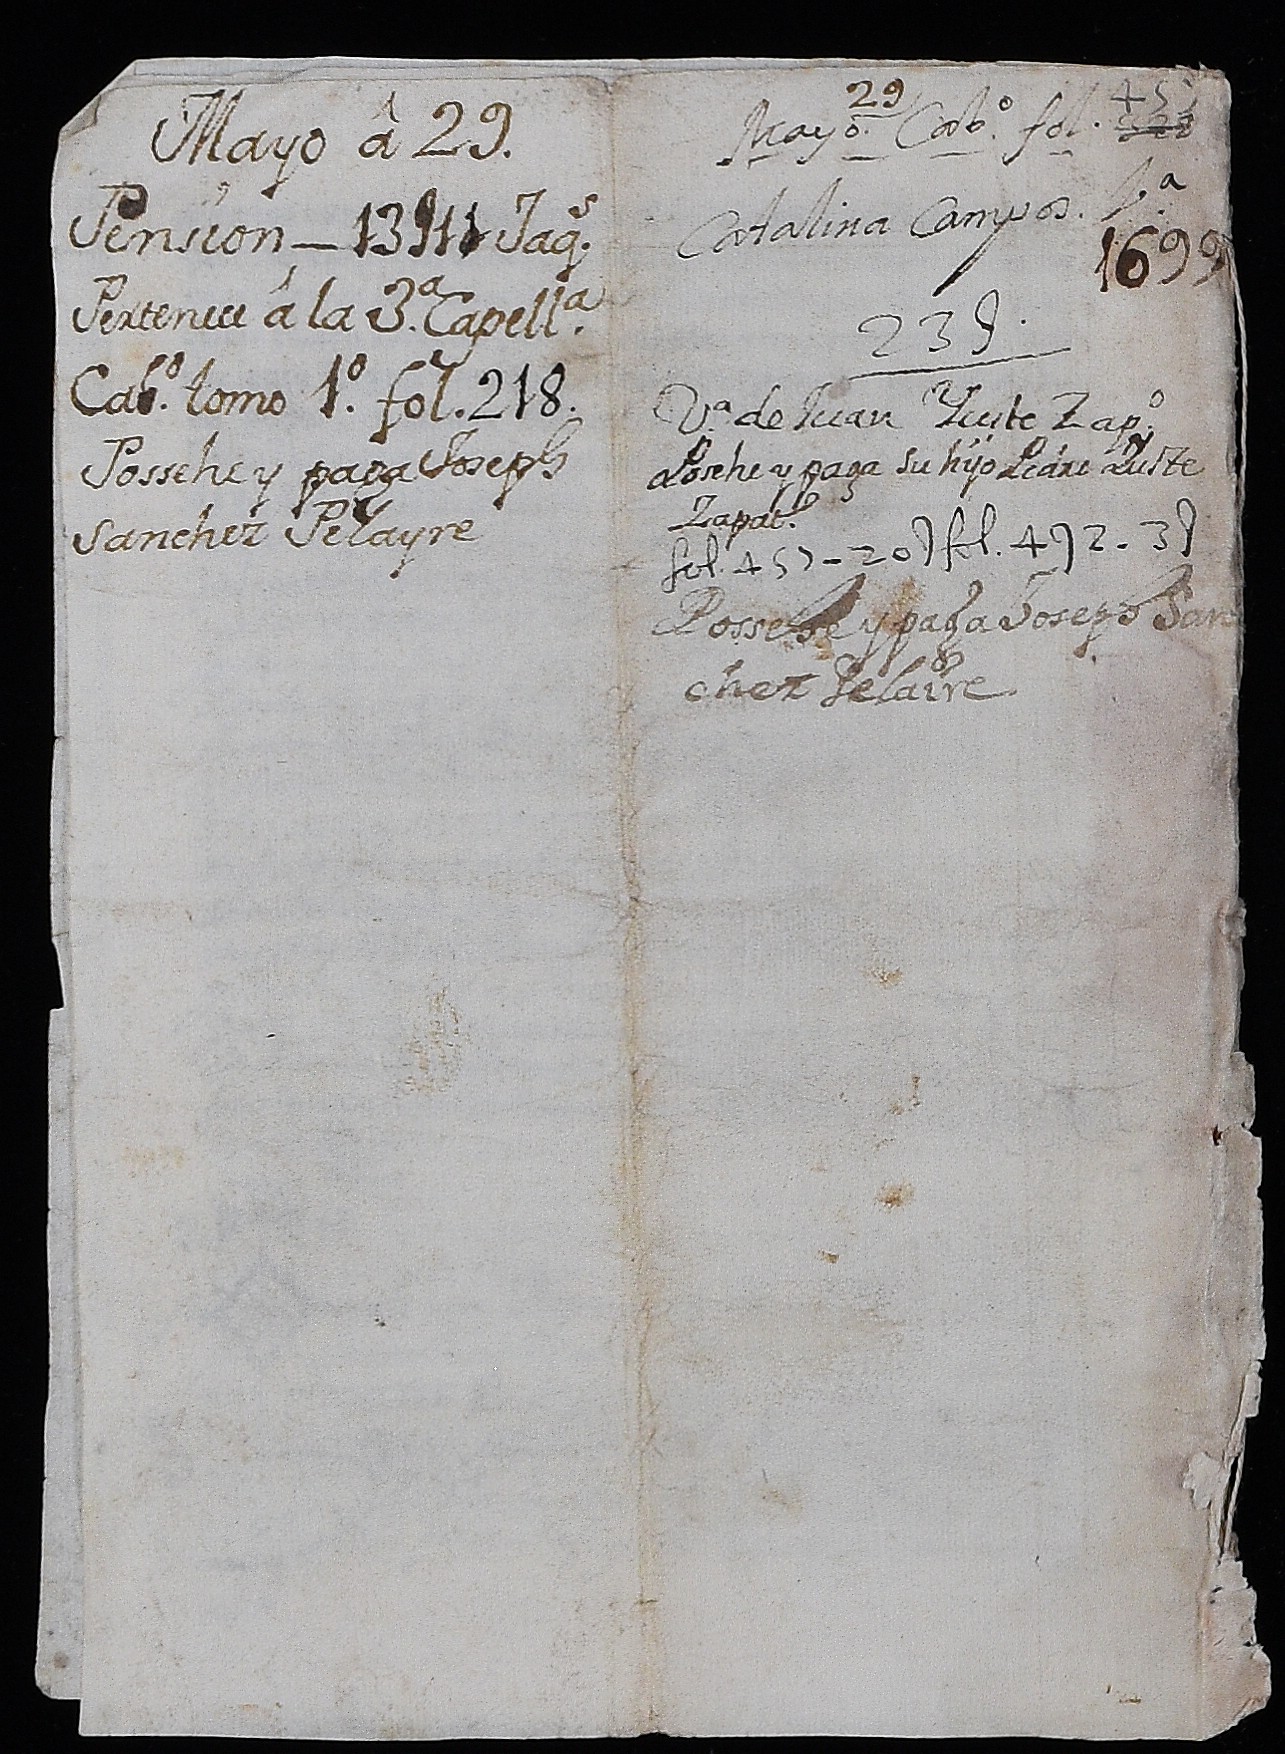 Mayo â 29.
Pension — 13 Jaq.s
Pertenece á la 3.a Capell.a
Cab.o tomo 1.o fol. 218.
Possehe y paga Joseph
Sanchez Pelayre
29
Mayo. Cab.o fol.
Catalina Campos.
1699
V.a de Juan Yuste Zap.o
Posehe y paga su hijo Pedro Yuste
Zapat.o
fol. 457 - 20 fol. 472 - 3
Possehe y paga Joseph San
chez Pelaire